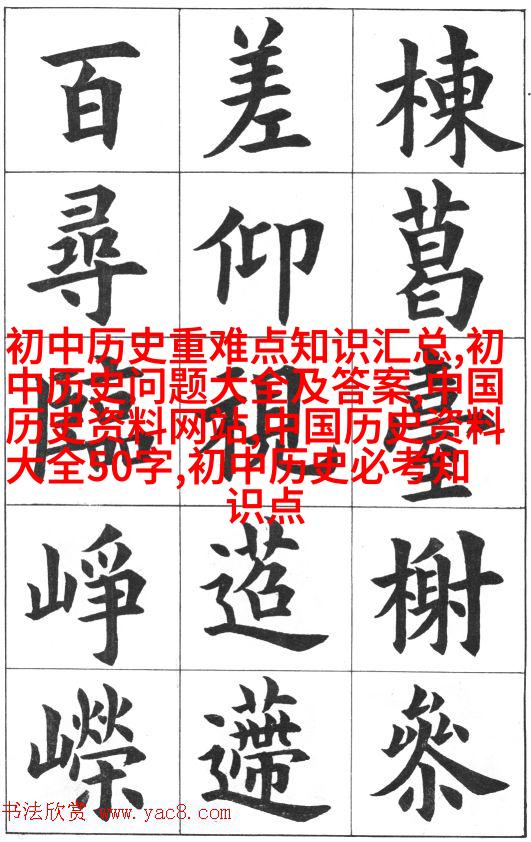 棟葛臺榭參
差仰視迢遰
百尋臨崢嶸
初中历史重难点知识汇总,初
中历史问题大全及答案,中国
历史资料网站,中国历史资料
大全50字,初中历史必考知
识点
书法欣赏 www.yac8.com